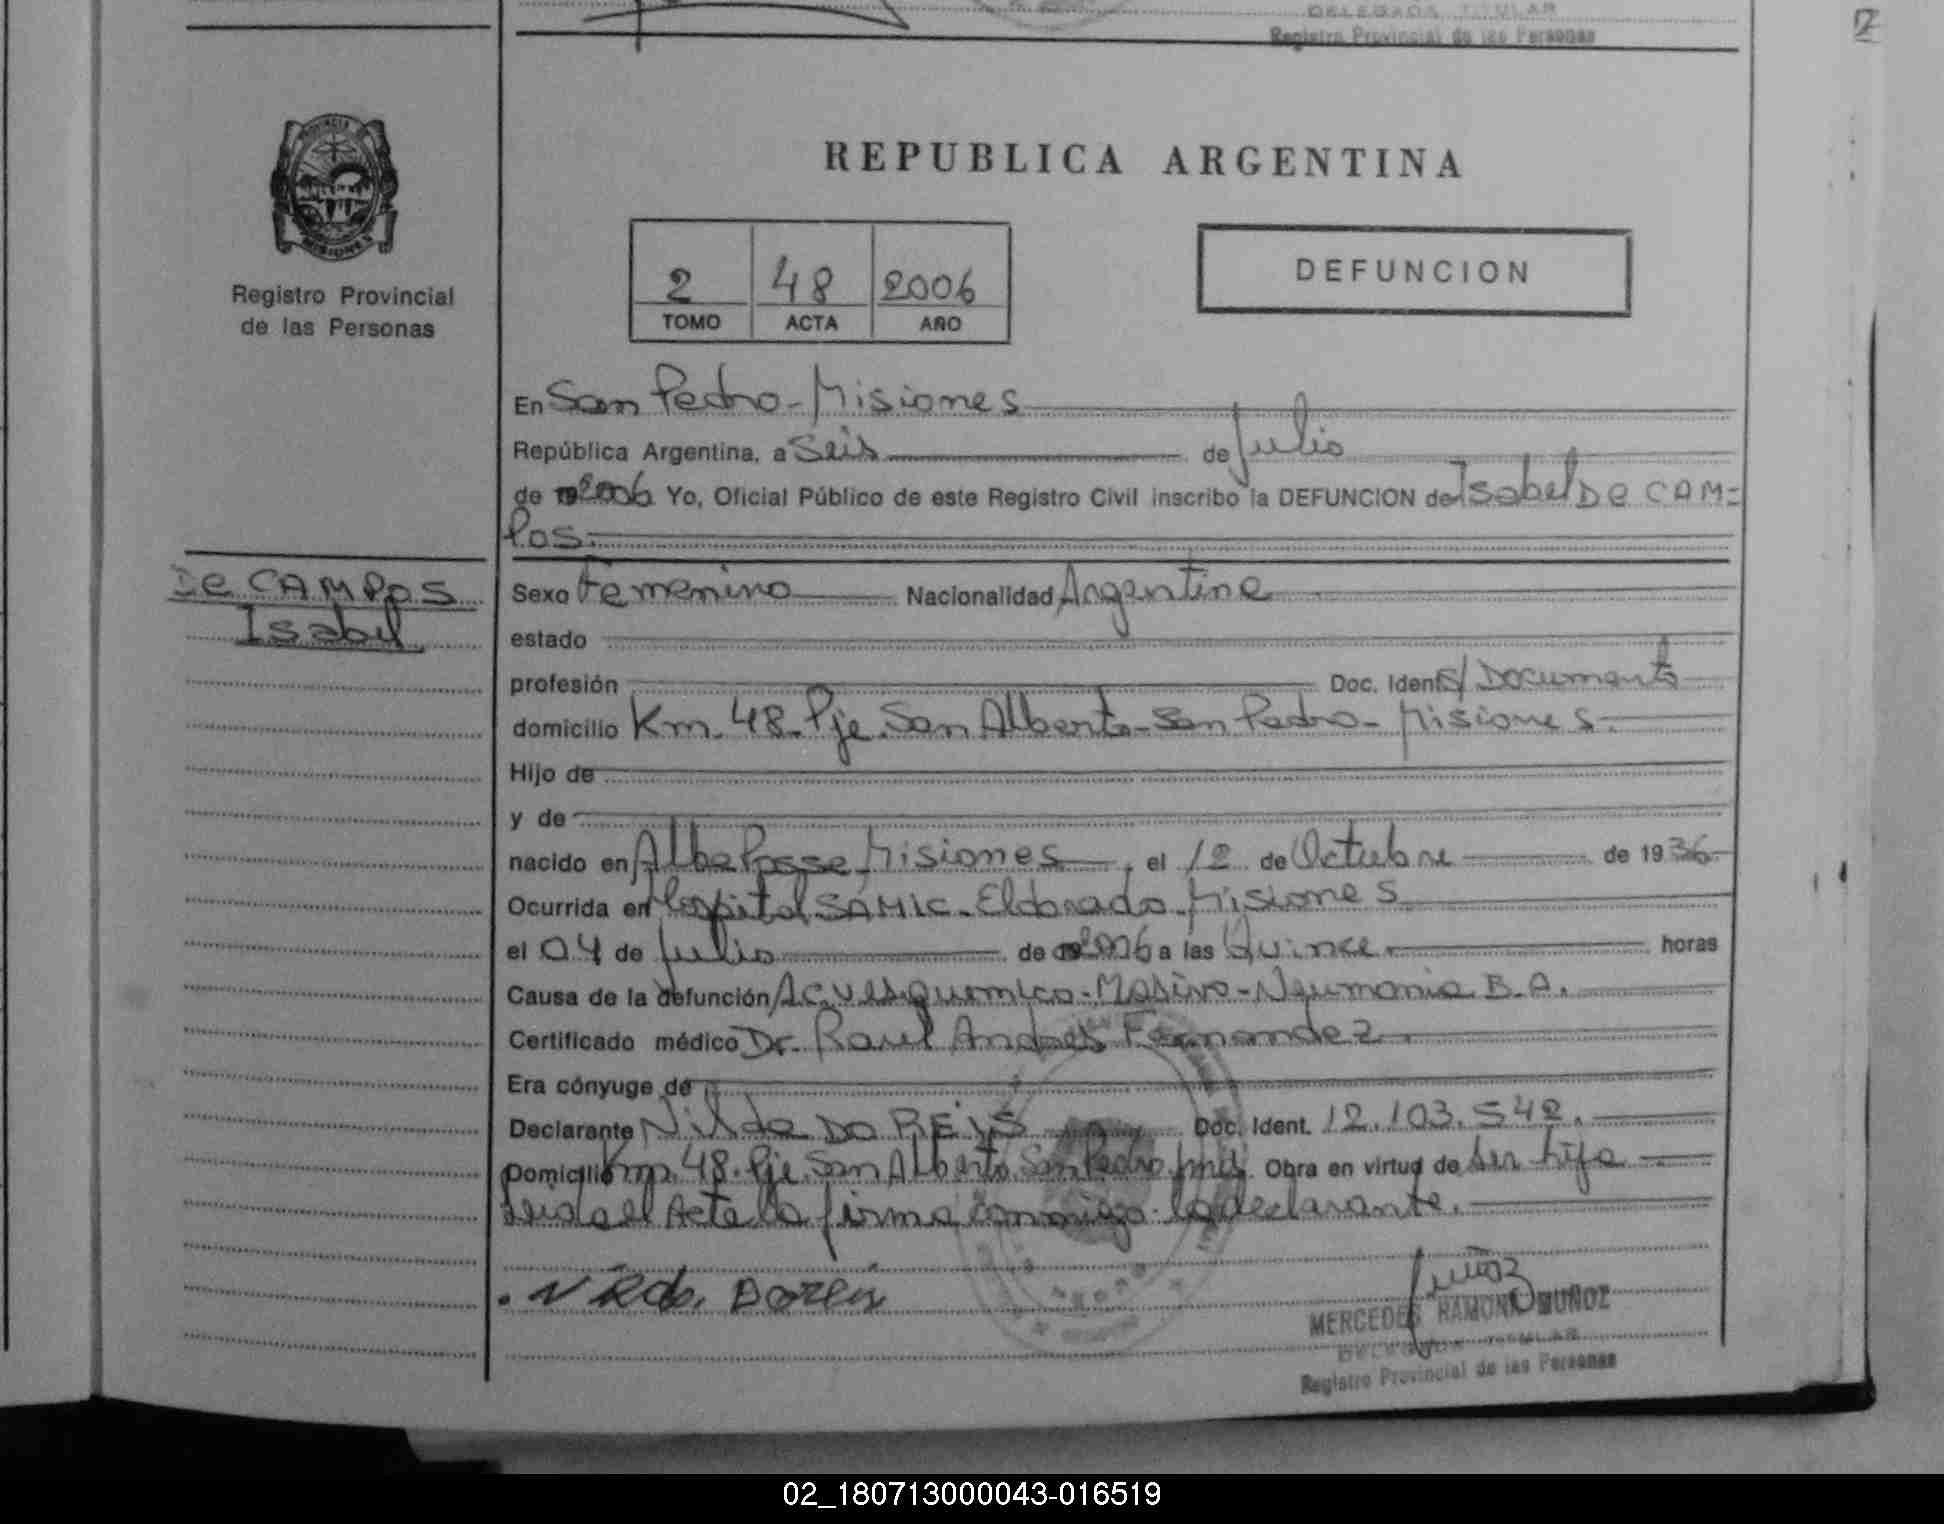 DELEGADA TITULAR
Registro Provincial de las Personas
PROVINCIA DE
MISIONES
Registro Provincial
de las Personas
REPUBLICA ARGENTINA
2 48 2006
TOMO ACTA AÑO
DEFUNCION
En San Pedro - Misiones
República Argentina, a Seis de Julio
de 2006 Yo, Oficial Público de este Registro Civil inscribo la DEFUNCION de Isabel De CAM=
Pos.
De CAMPOS
Isabel
Sexo Femenino Nacionalidad Argentina
estado
profesión Doc. Ident. S/ Documento
domicilio Km. 48. Pje. San Alberto - San Pedro - Misiones.
Hijo de
y de
nacido en Alba Posse, Misiones, el 12 de Octubre de 1936
Ocurrida en Hospital SAMIC - Eldorado - Misiones
el 04 de Julio de 2006 a las Quince horas
Causa de la defunción A.C.V Isquemico - Masivo - Neumonia B.A.
Certificado médico Dr. Raul Andres Fernandez.
Era cónyuge de
Declarante Nilda DO REIS Doc. Ident. 12.103.542.
Domicilio Km. 48. Pje. San Alberto. San Pedro. Obra en virtud de ser hija
leida el Acta la firma conmigo la declarante.
MERCEDES RAMONA MUÑOZ
DELEGADA TITULAR
Registro Provincial de las Personas
02_180713000043-016519